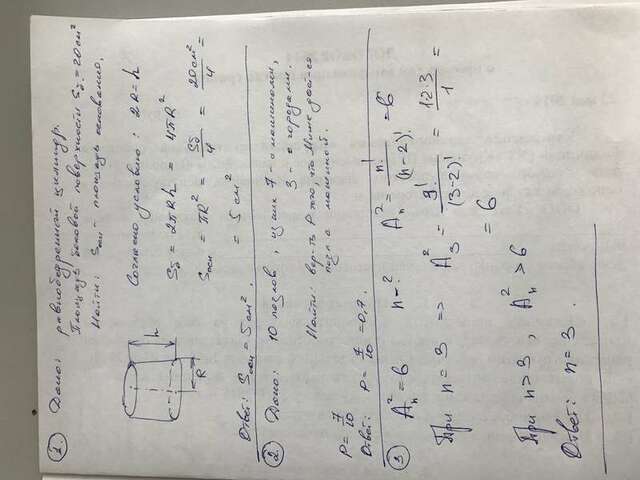 1 Дано: равнобедренный цилиндр.
Площадь боковой поверхности Sб. = 20 см²
Найти: Sосн - площадь основания.
Согласно условию: 2R = h
h
R
Sб = 2πRh = 4πR²
Sосн = πR² = Sб/4 = 20см²/4 =
= 5 см²
Ответ: Sосн = 5 см².
2. Дано: 10 пазлов, из них 7 - с машинами,
3 - с городами.
Найти: вер-ть P того, что Мише дост-ся
пазл с машиной.
P = 7/10
Ответ: P = 7/10 = 0,7.
3 Aₙ² = 6 n - ? Aₙ² = n!/(n-2)! = 6
При n = 3 => A₃² = 3!/(3-2)! = 1·2·3/1 =
= 6
При n > 3, Aₙ² > 6
Ответ: n = 3.